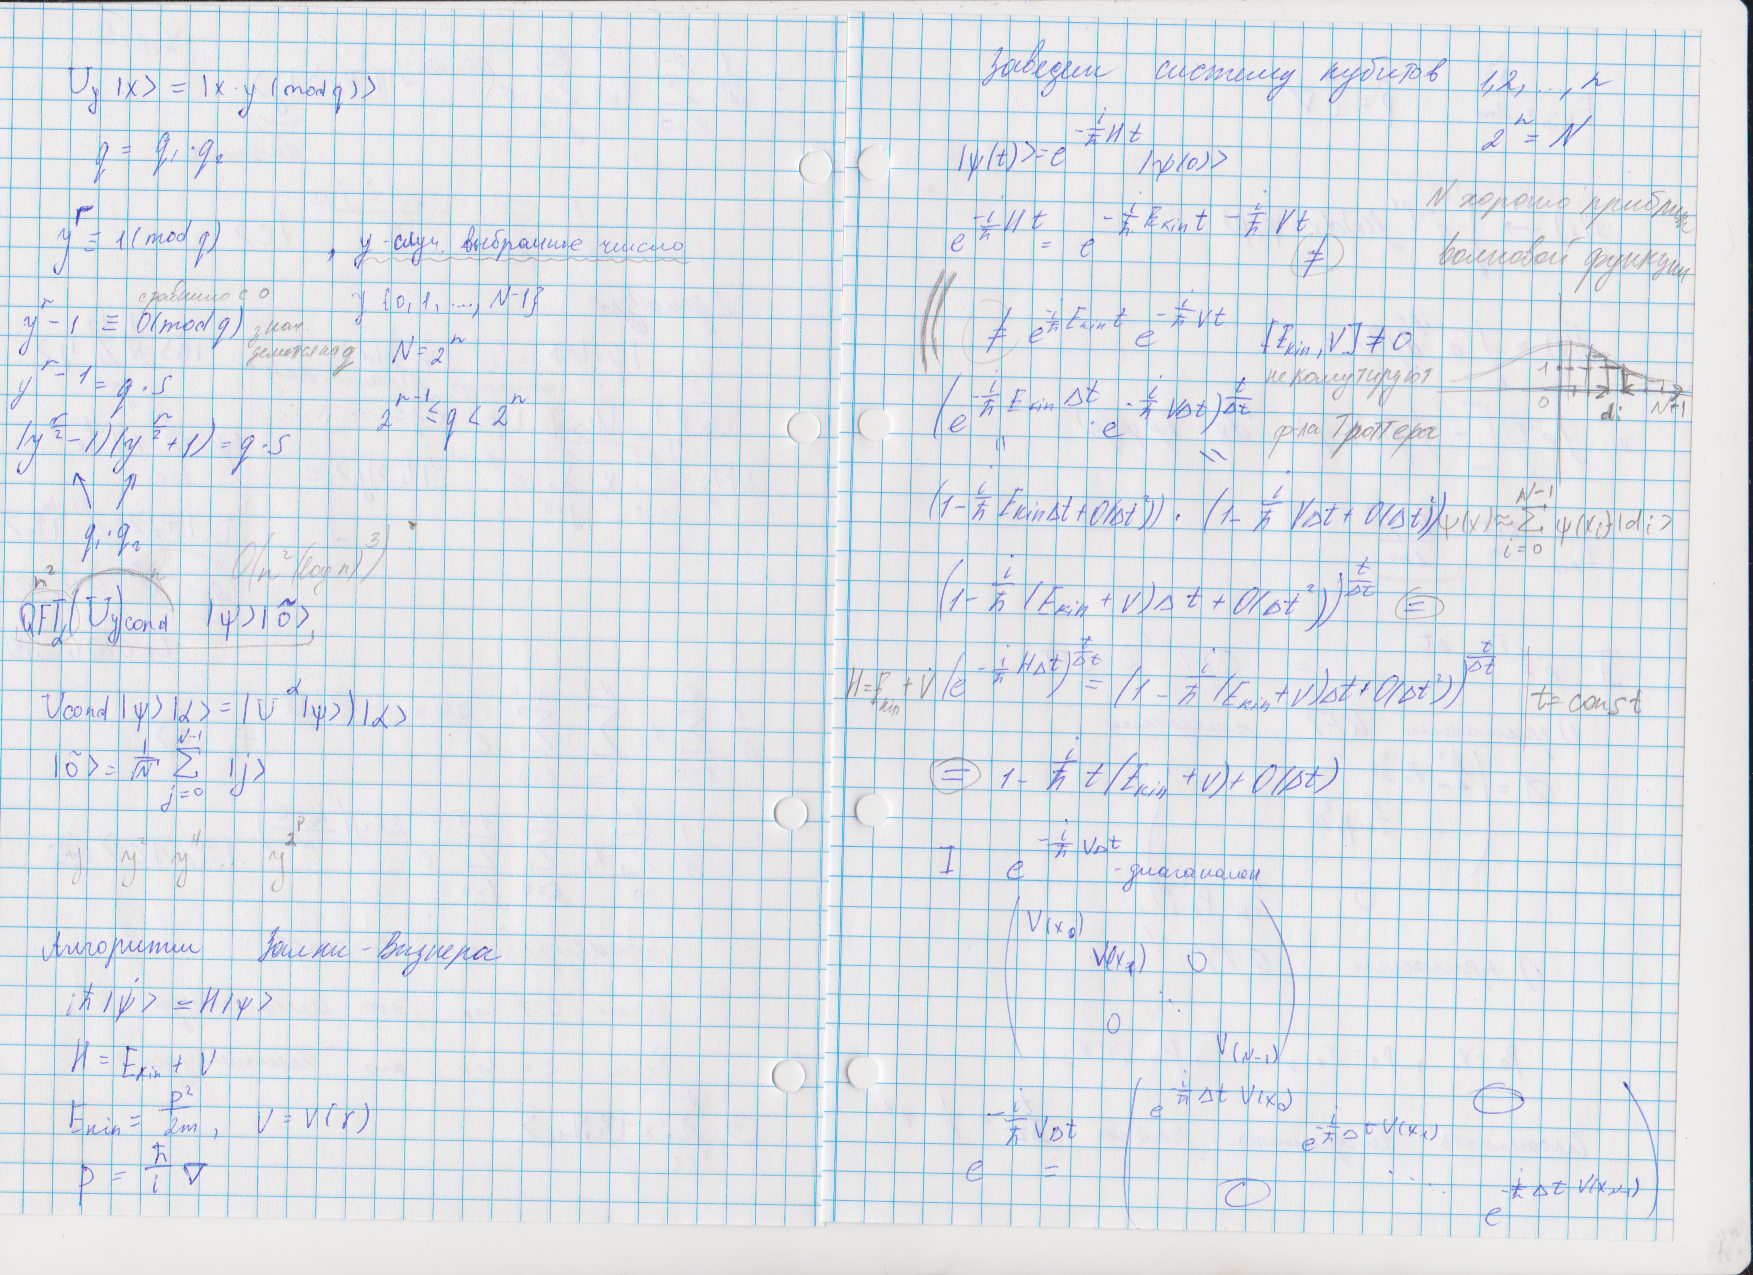 U_y |x> = |x·y (mod q)>
q = q₁·q₂
y^r ≡ 1 (mod q) , y - случ. выбранное число
y {0, 1, ..., N-1}
сравнимо с 0
y^r - 1 ≡ 0 (mod q)
N = 2^n
y^r - 1 = q·s
2^{n-1} ≤ q < 2^n
(y^{r/2} - 1)(y^{r/2} + 1) = q·s
q₁·q₂
O(n²(log n)³)
n² n
QFT₂ (U_y)cond |ψ>|õ>
Ucond |ψ>|α> = |U^α |ψ>)|α>
|õ> = 1/√N Σ_{j=0}^{N-1} |j>
y y² y⁴ .. y^{2^p}
Алгоритм Залки-Визнера
iħ|ψ̇> = H|ψ>
H = E_kin + V
E_kin = p²/2m , V = V(r)
p = ħ/i ∇
Заведем систему кубитов 1,2,...,n
2^n = N
|ψ(t)> = e^{-i/ħ H t} |ψ(0)>
N хорошо приближ
волновой функции
e^{-i/ħ H t} = e^{-i/ħ E_kin t - i/ħ V t} ≠
≠ e^{-i/ħ E_kin t} e^{-i/ħ V t} [E_kin, V] ≠ 0
не комутируют
1
0 di N-1
(e^{-i/ħ E_kin Δt} · e^{-i/ħ VΔt})^{t/Δt} ф-ла Троттера
(1 - i/ħ E_kin Δt + O(Δt²)) · (1 - i/ħ VΔt + O(Δt²))
ψ(x) ≈ Σ_{i=0}^{N-1} ψ(x_i) |d_i>
(1 - i/ħ (E_kin + V)Δt + O(Δt²))^{t/Δt} =
H = E_kin + V (e^{-i/ħ HΔt})^{t/Δt} = (1 - i/ħ (E_kin + V)Δt + O(Δt²))^{t/Δt} t = const
= 1 - i/ħ t (E_kin + V) + O(Δt)
I e^{-i/ħ VΔt} - диагонален
V(x₀)
V(x₁) 0
0 ⋱
V(N-1)
e^{-i/ħ VΔt} = ( e^{-i/ħ Δt V(x₀)} 0
e^{-i/ħ Δt V(x₁)}
0 ⋱ e^{-i/ħ Δt V(x_{N-1})} )